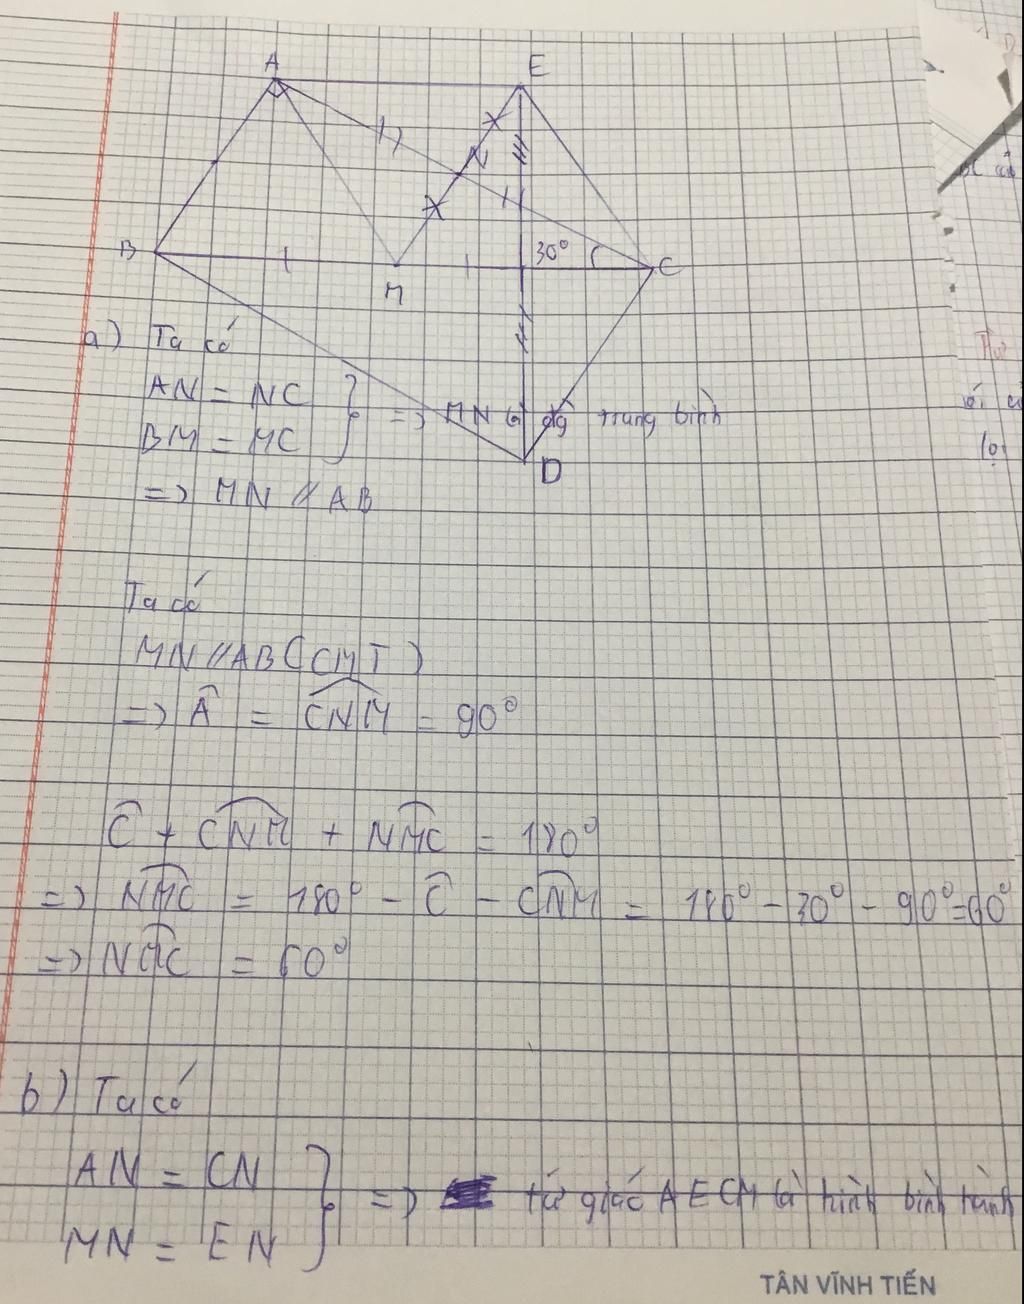 A E
N
B 30° C
M
a) Ta có
AN = NC
BM = MC } => MN là đg trung bình
D
=> MN // AB
Ta có
MN // AB (CMT)
=> Â = \widehat{CNM} = 90°
\widehat{C} + \widehat{CNM} + \widehat{NMC} = 180°
=> \widehat{NMC} = 180° - \widehat{C} - \widehat{CNM} = 180° - 30° - 90° = 60°
=> \widehat{NMC} = 60°
b) Ta có
AN = CN
MN = EN } => tứ giác AECM là hình bình hành
TÂN VĨNH TIẾN